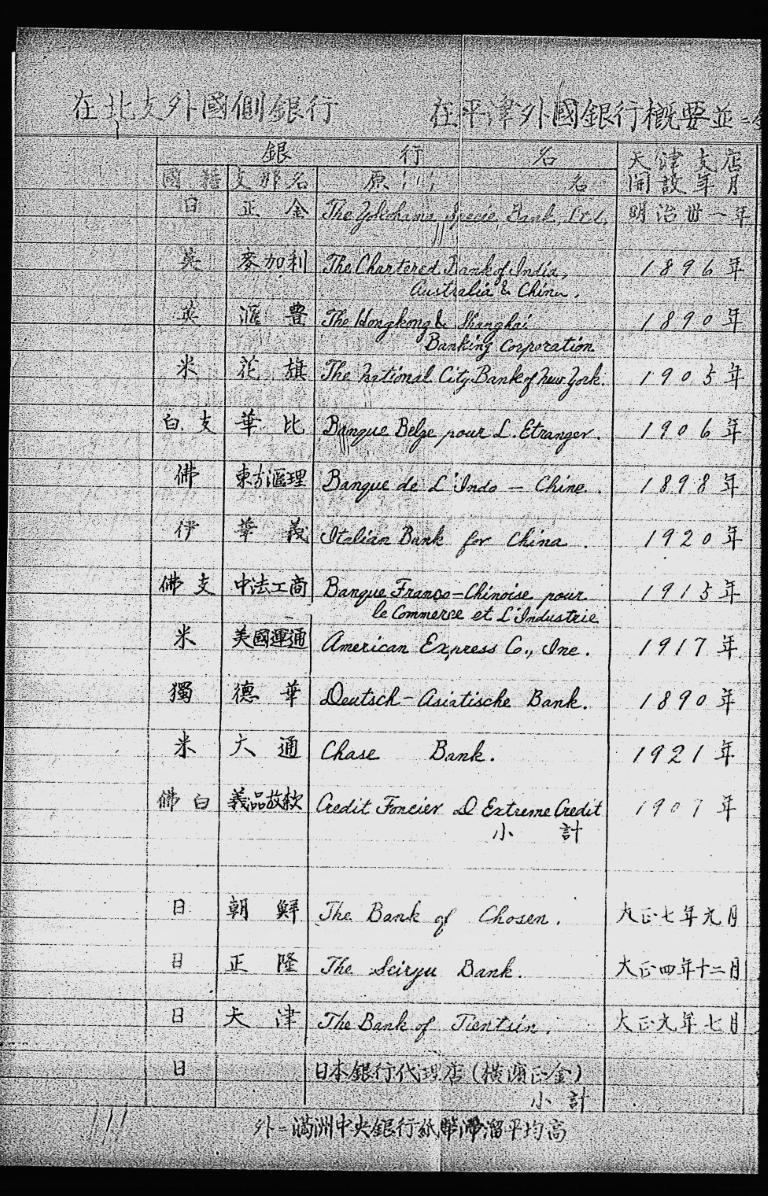 在北支外國側銀行 在平津外國銀行概要並ニ
銀行名 天津支店
國籍 支那名 原名 開設年月
日 正金 The Yokohama Specie Bank, Ltd. 明治卅一年
英 麥加利 The Chartered Bank of India, 1896年
Australia & China.
英 滙豊 The Hongkong & Shanghai 1890年
Banking Corporation
米 花旗 The National City Bank of New York. 1905年
白支 華比 Banque Belge pour L. Etranger. 1906年
佛 東方滙理 Banque de L'Indo - Chine. 1898年
伊 華義 Italian Bank for China. 1920年
佛支 中法工商 Banque Franco-Chinoise pour 1915年
le Commerce et L'Industrie
米 美國運通 American Express Co., Inc. 1917年
獨 德華 Deutsch-Asiatische Bank. 1890年
米 大通 Chase Bank. 1921年
佛白 義品放款 Credit Foncier D Extreme Credit 1907年
小計
日 朝鮮 The Bank of Chosen. 大正七年元月
日 正隆 The Seiryu Bank. 大正四年十二月
日 天津 The Bank of Tientsin. 大正九年七月
日 日本銀行代理店(橫濱正金)
小計
外ニ滿洲中央銀行紙幣滯溜平均高